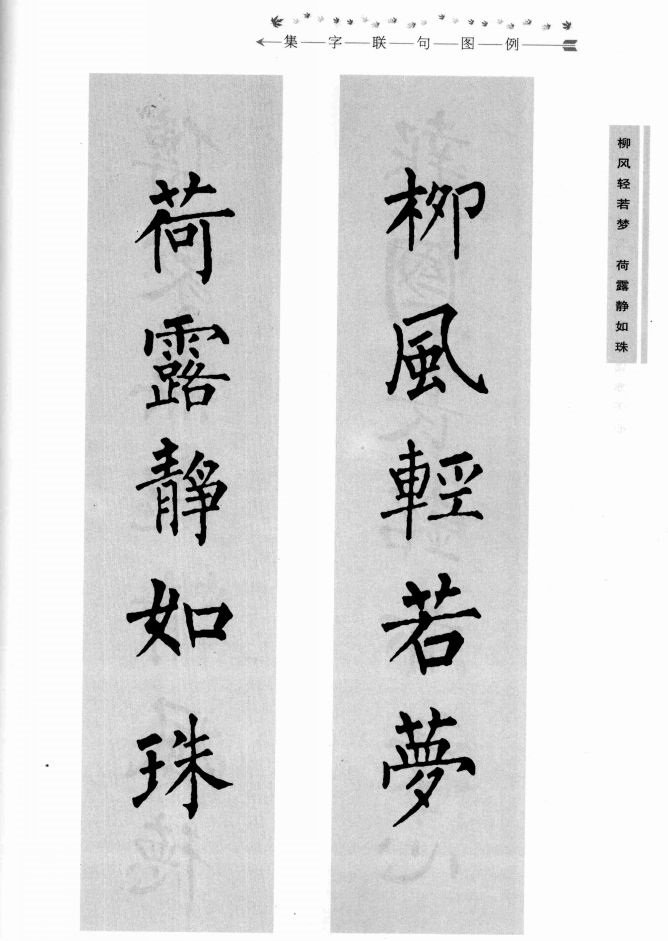 集字联句图例
柳風輕若夢
荷露靜如珠
柳风轻若梦 荷露静如珠